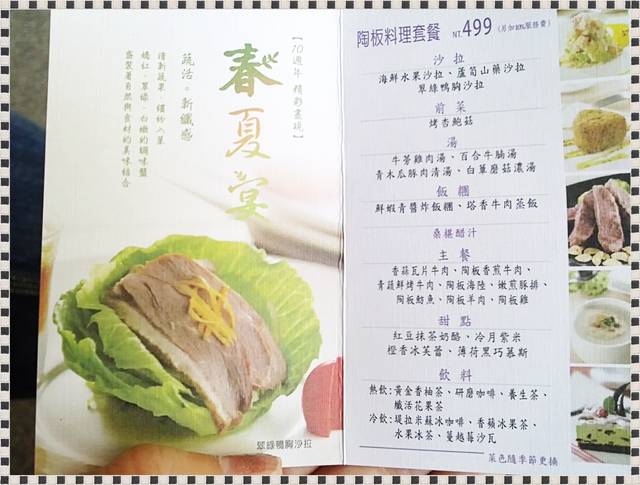 【10週年 精彩重現】
春夏宴
蔬活。新纖感
清新蔬果 繽紛入菜
嬌紅、翠綠、白嫩的調味盤
盛裝著自然與食材的美味結合
翠綠鴨胸沙拉
陶板料理套餐 NT.499 (另加10%服務費)
沙拉
海鮮水果沙拉、蘆筍山藥沙拉
翠綠鴨胸沙拉
前菜
烤杏鮑菇
湯
牛蒡雞肉湯、百合牛腩湯
青木瓜豚肉清湯、白單磨菇濃湯
飯糰
鮮蝦青醬炸飯糰、塔香牛肉蒸飯
桑椹醋汁
主餐
香蒜瓦片牛肉、陶板香煎牛肉、
青蔬鮮烤牛肉、陶板海陸、嫩煎豚排、
陶板魴魚、陶板羊肉、陶板雞
甜點
紅豆抹茶奶酪、冷月紫米
橙香冰芙蕾、薄荷黑巧慕斯
飲料
熱飲:黃金香柚茶、研磨咖啡、養生茶、
纖活花果茶
冷飲:堤拉米蘇冰咖啡、香蘋冰果茶、
水果冰茶、蔓越莓沙瓦
菜色隨季節更換